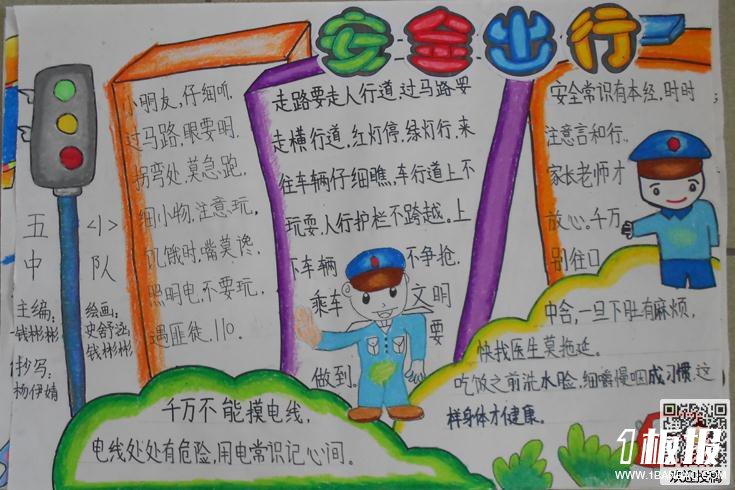 安全出行
五<1>
中队
主编:
钱彬彬
绘画:
史舒涵
钱彬彬
抄写:
杨伊婧
小朋友,仔细听.
过马路,眼要明.
拐弯处,莫急跑,
细小物,注意玩,
饥饿时,嘴莫馋.
照明电,不要玩.
遇匪徒,110.
走路要走人行道,过马路要
走横行道,红灯停,绿灯行,来
往车辆仔细瞧,车行道上不
玩耍.人行护栏不跨越.上
下车辆不争抢.
乘车文明
要
做到.
安全常识有本经,时时
注意言和行.
家长老师才
放心。千万
别往口
中含,一旦下肚有麻烦,
快找医生莫拖延。
吃饭之前洗水脸,细嚼慢咽成习惯.这
样身体才健康。
千万不能摸电线,
电线处处有危险,用电常识记心间。
1板报
WWW.1BANBAO.COM
欢迎投稿